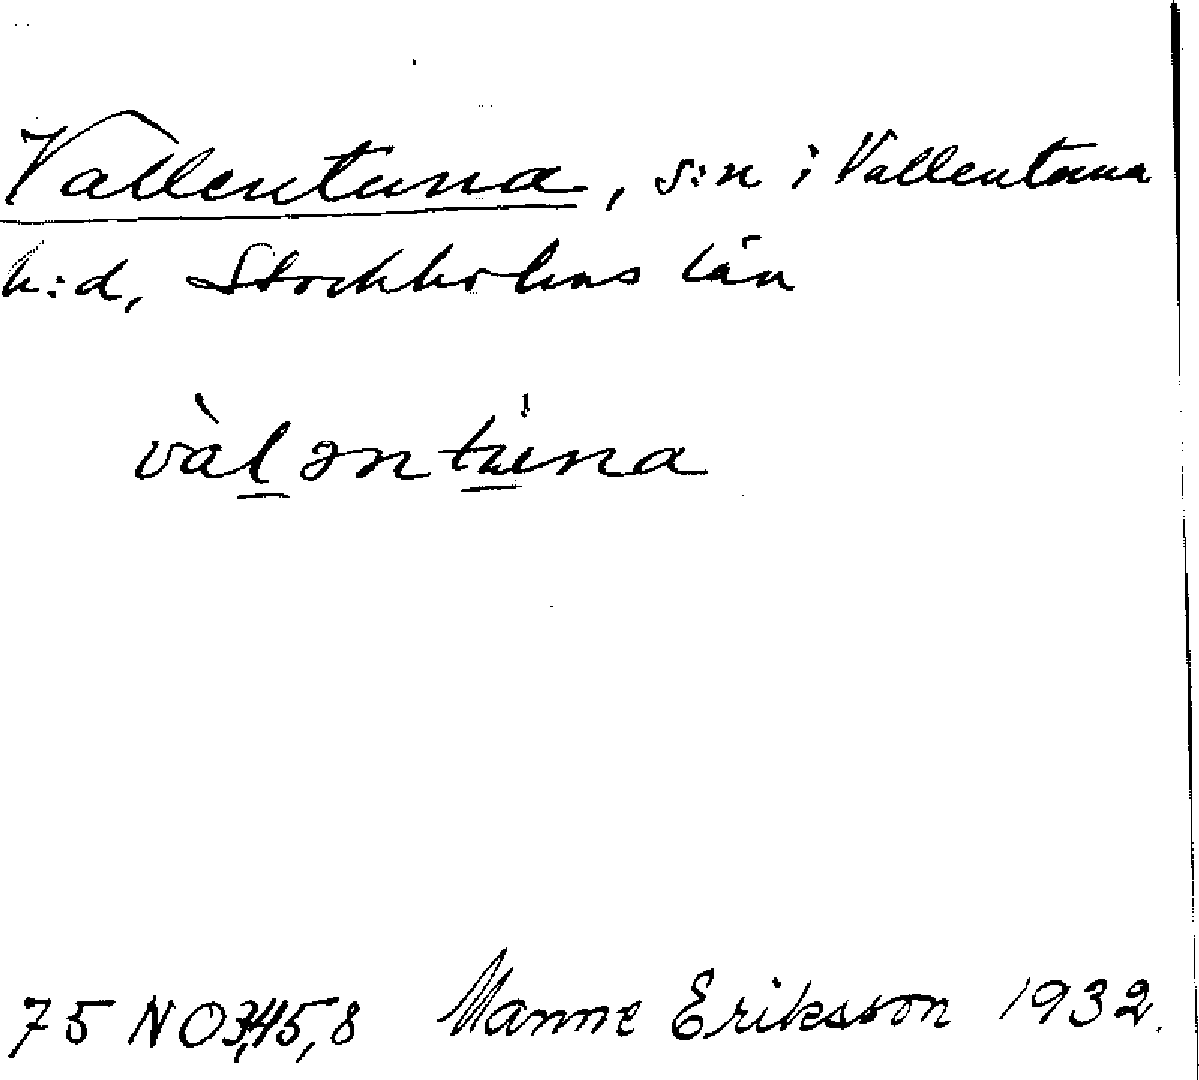 Vallentuna, s:n i Vallentuna
h:d, Stockholms län
vàləntúna
75 NO 3,4,5,8 Manne Eriksson 1932.